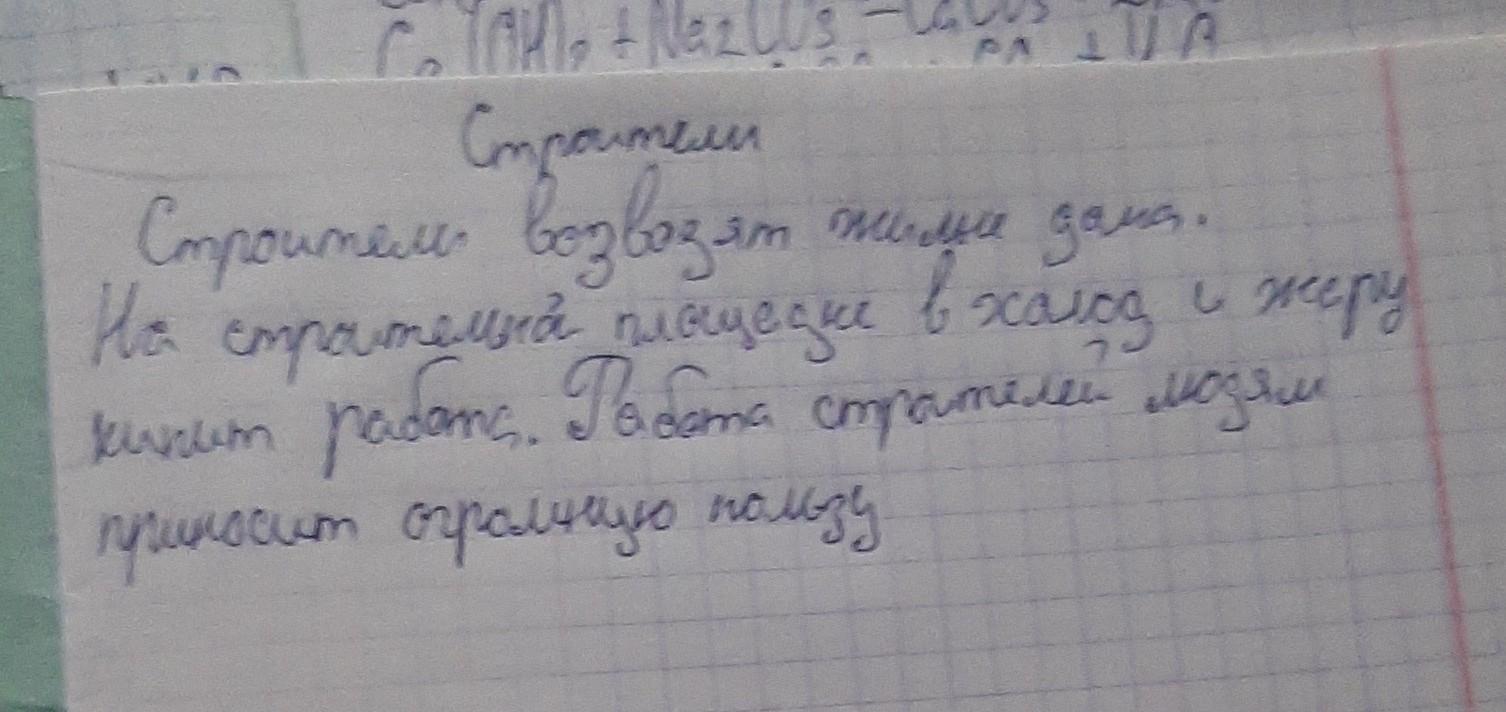 Ca(OH)2 + Na2CO3 = CaCO3
Строители
Строители возводят жилые дома.
На строительной площадке в холод и жару
кипит работа. Работа строителей людям
приносит огромную пользу